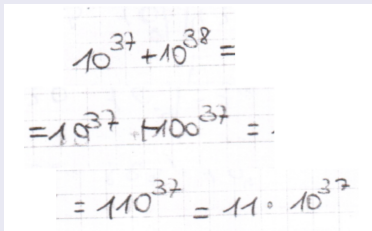 10³⁷ + 10³⁸ =
= 10³⁷ + 100³⁷ =
= 110³⁷ = 11 · 10³⁷